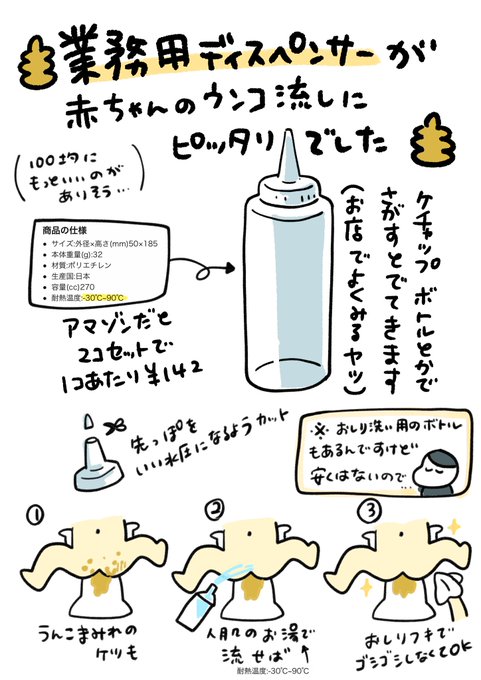 業務用ディスペンサーが
赤ちゃんのウンコ流しに
ピッタリでした
(100均に
もっといいのが
ありそう…)
ケチャップボトルとかで
さがすとでてきます
(お店でよくみるヤツ)
商品の仕様
• サイズ:外径×高さ(mm)50×185
• 本体重量(g):32
• 材質:ポリエチレン
• 生産国:日本
• 容量(cc)270
• 耐熱温度:-30℃~90℃
アマゾンだと
2コセットで
1コあたり¥142
先っぽを
いい水圧になるようカット
※おしり洗い用のボトル
もあるんですけど
安くはないので…
①
うんこまみれの
ケツも
②
人肌のお湯で
流せば
耐熱温度:-30℃~90℃
③
おしりフキで
ゴシゴシしなくてOK